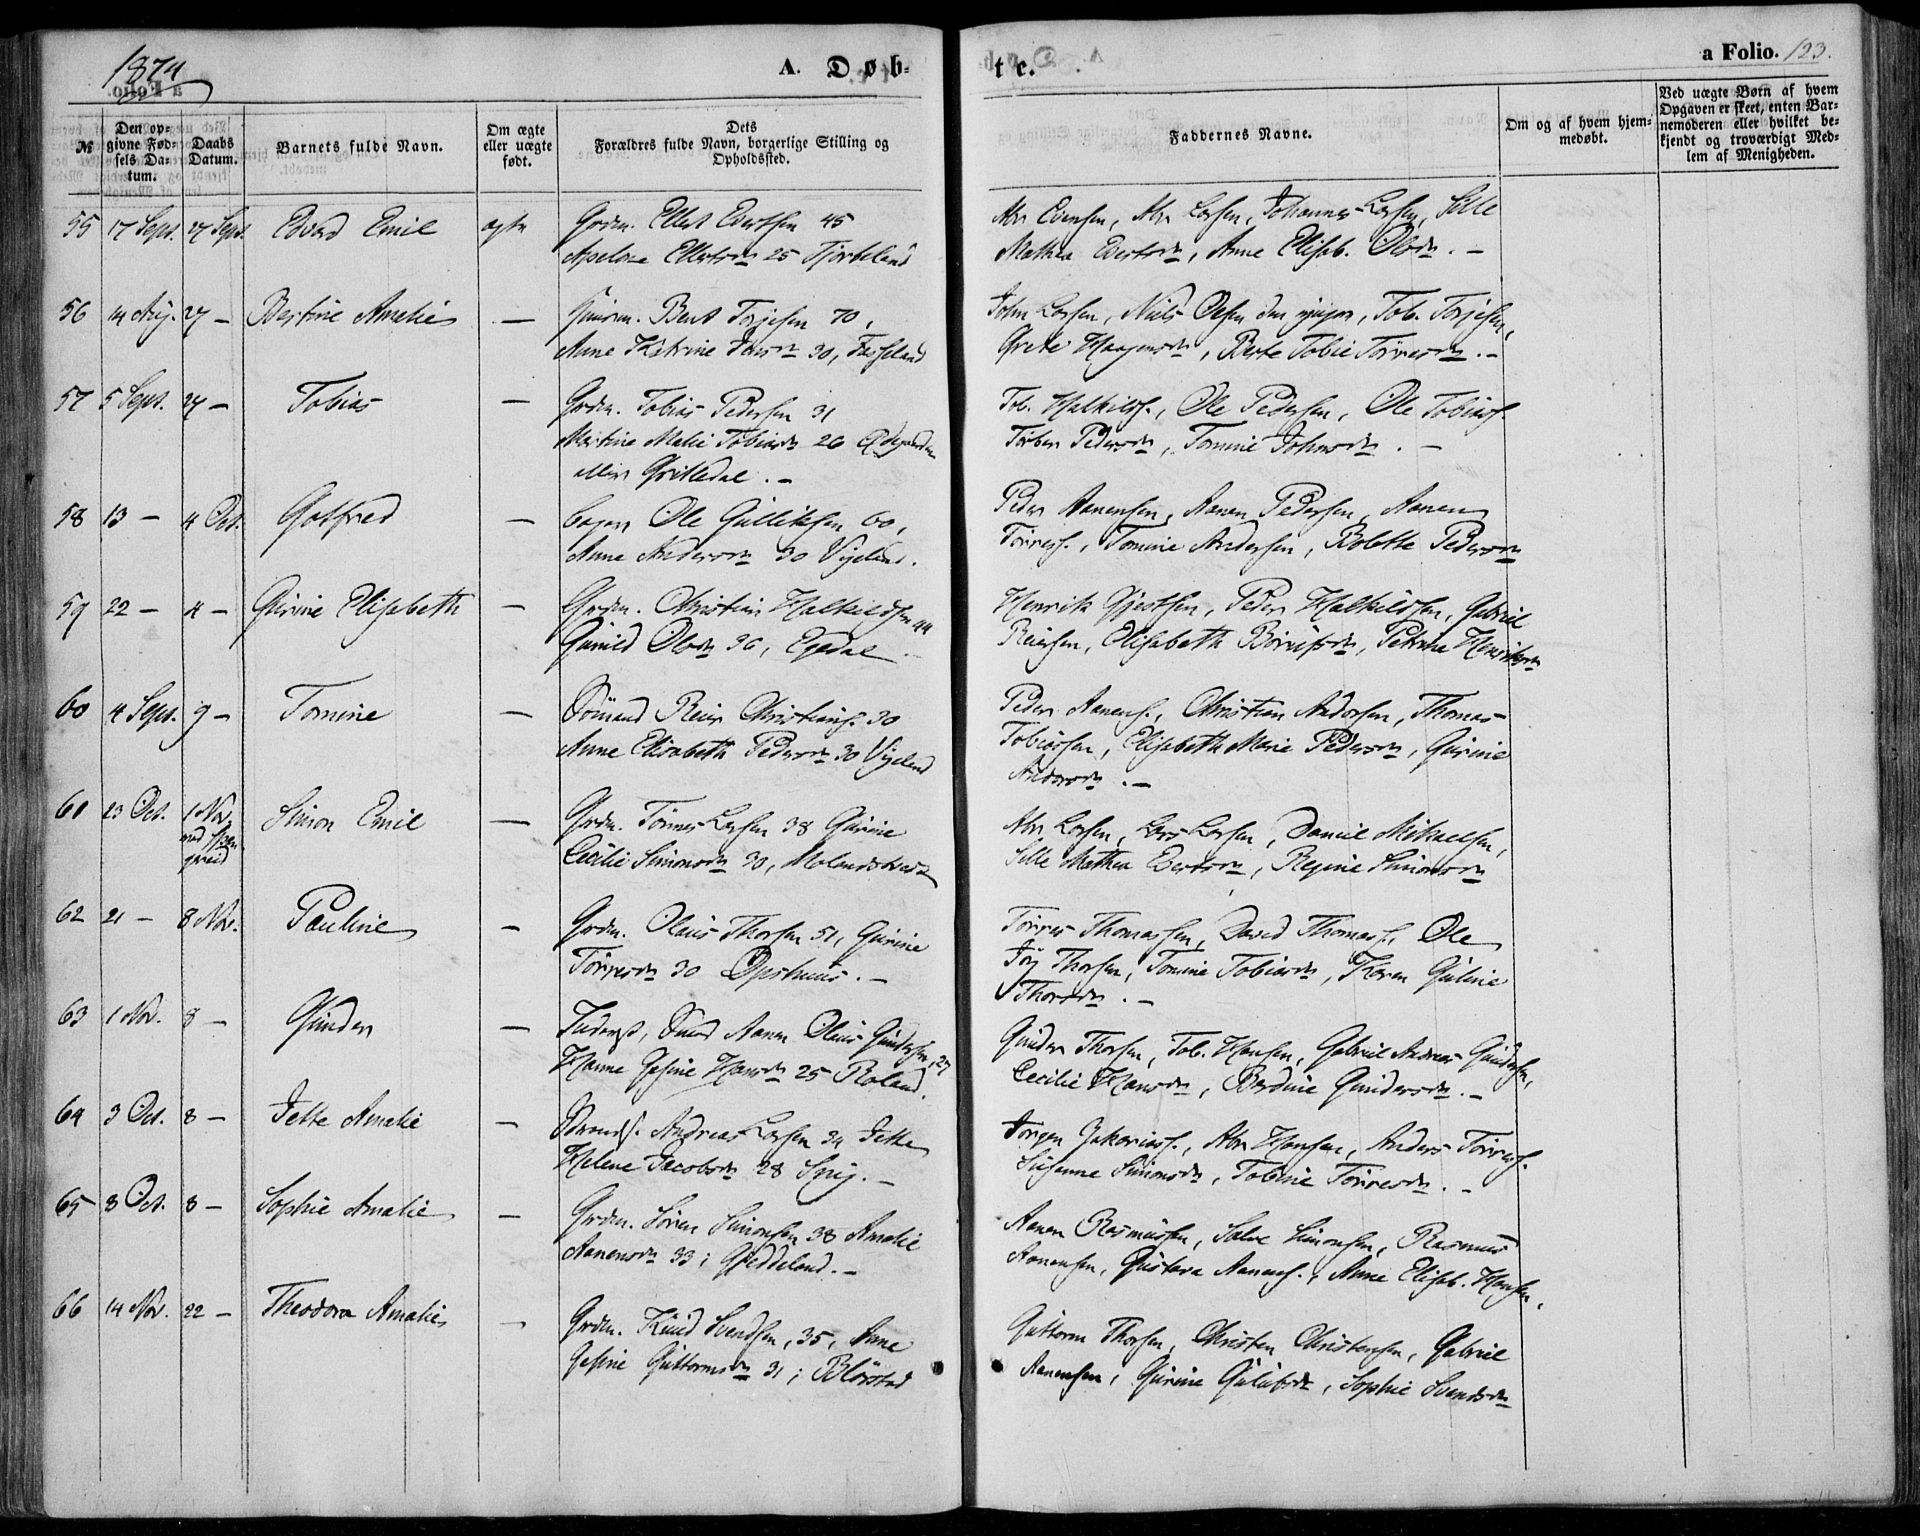 1874
A. Døb-
te.
a Folio. 123.
№
Den op-
givne Fød-
sels Da-
tum.
Daabs
Datum.
Barnets fulde Navn.
Om ægte
eller uægte
født.
Dets
Forældres fulde Navn, borgerlige Stilling og
Opholdssted.
Faddernes Navne.
Om og af hvem hjem-
medøbt.
Ved uægte Børn af hvem
Opgaven er skeet, enten Bar-
nemoderen eller hvilket be-
kjendt og troværdigt Med-
lem af Menigheden.
55 17 Sept. 27 Sept. Edvard Emil ægte Grdm. Ellert Evertsen 45
Apelone Ellertsdr 25
Abr Evensen, Abr Larsen, Johannes Larsen, Sille
Mathea Evertsdr, Anne Elisab. Olsdr. —
56 14 Aug. 27 — Bertine Amalie — Bent Torjesen 70,
Anne Katrine 30,
John Larsen, Niels Olsen den yngre, Tob. Torjesen,
Grete Haagensdr, Berte Tobie Törresdr. —
57 5 Sept. 27 — Tobias — Grdm. Tobias Pedersen 31
Martine Malie Tobiasdr 26
Tob. Halkilds., Ole Pedersen, Ole Tobias.
Törber Pedersdr, Tomine Johnsdr. —
58 13 — 4 Oct. Gotfred — Ole Gulliksen 60,
Anne Andersdr 30 Vigeland.
Peder Aanensen, Aanen Pedersen, Aanen
Törress., Tomine Andersen, Bolette Pedersdr
59 22 — 4 — Gurine Elisabeth — Grdm. Christian Halkildsen 44
Gunild Olsdr 36, Egedal.
Henrik Gjertsen, Peder Halkildsen, Gabriel
Reiersen, Elisabeth Petrine Henriksdr
60 4 Sept. 9 — Tomine — Sömand Reier Christians. 30
Anne Elisabeth Pedersdr 30 Vigeland
Peder Aanens., Christian Andersen, Thomas
Tobiassen, Elisabeth Marie Pedersdr, Gurine
Andersdr. —
61 23 Oct. 1 Nov. Simon Emil — Grdm. Törres Larsen 38 Gurine
Cecilie Simonsdr 30,
Abr Larsen, Lars Larsen, Daniel Mikaelsen,
Sille Mathea Evertsdr, Regine Simonsdr
62 21 — 8 Nov. Pauline — Grdm. Olaus Thorsen 51, Gurine
Törresdr 30 Opshuus. —
Törres Thomassen, David Thomass. Ole
Thorsen, Tomine Tobiasdr, Karen Guline
Thorsdr. —
63 1 Nov. 8 — Gunder — Aanen Olaus Gundersen, 27
Hanne Gesine Hansdr 25 Roland.
Gunder Thorsen, Tob. Hansen, Gabriel Andreas Gundersen,
Cecilie Hansdr, Berdine Gundersdr. —
64 3 Oct. 8 — Jette Amalie — Andreas Larsen 34 Jette
Helene Jacobsdr 28
Jörgen Zakarias., Abr Hansen, Anders Törress.
Susanne Simonsdr, Tobine Törresdr. —
65 8 Oct. 8 — Sophie Amalie — Grdm. Sören Simonsen 38 Amalie
Aanensdr 33; Gjeddeland. —
Aanen Rasmussen, Salve Simonsen, Rasmus
Aanensen, Gustava Aanens., Anne Elisab. Hansen.
66 14 Nov. 22 — Theodora Amalie — Grdm. Knud Svendsen, 35, Anne
Gesine Guttormsdr 31; Blörstad
Guttorm Thorsen, Christen Christensen, Gabriel
Aanensen, Gurine, Sophie Svendsdr